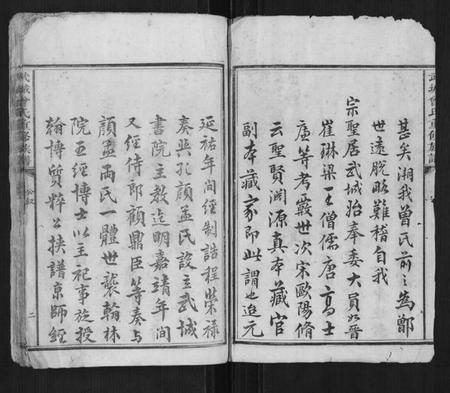 甚矣湘我曾氏前之為鄫
世遠脫略難稽自我
宗聖居武城始奉委大員如晉
崔琳梁王僧儒唐高士
廉等考覈世次宋歐陽脩
云聖賢淵源真本藏官
副本藏家即此謂也迨元
延祐年間經制誥程榮祿
奏與孔顏孟氏設立武城
書院主教迄明嘉靖年間
又經侍郎顧鼎臣等奏與
顏孟兩氏一體世襲翰林
院五經博士以主祀事旋授
翰博質粹公挾譜京師經
武城曾氏重修族譜
二
武城曾氏重修族譜